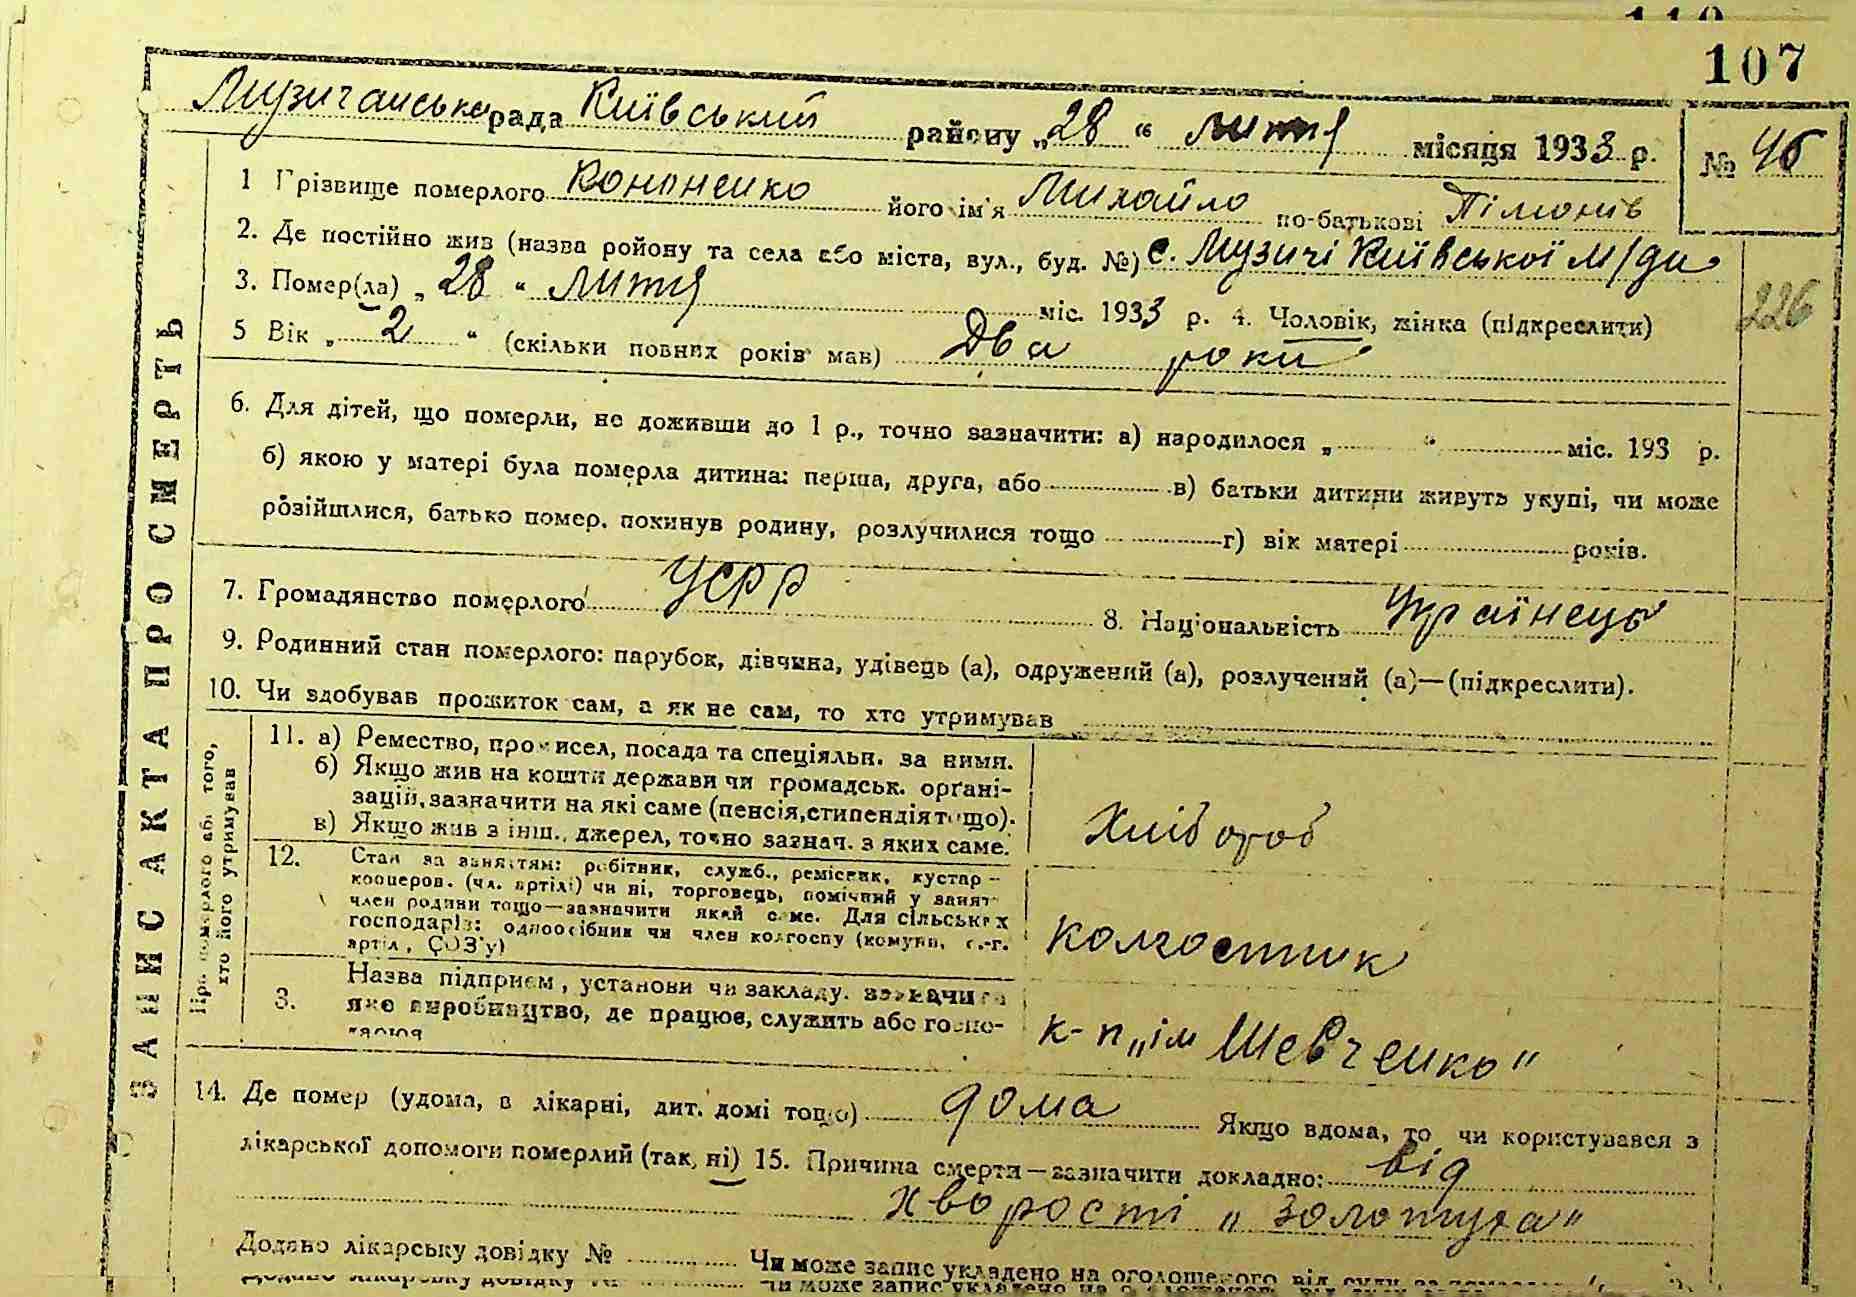 107
Музичанська рада Київський району „28“ лютня місяця 1933 р. № 46
1 Прізвище померлого Кононенко його ім'я Михайло по-батькові Пімонів
2. Де постійно жив (назва ройону та села або міста, вул., буд. №) с. Музичі Київської м/ди
3. Помер(ла) „28“ лютня міс. 1933 р. 4. Чоловік, жінка (підкреслити)
226
5 Вік „2“ (скільки повних років мав) Два роки
6. Для дітей, що померли, не доживши до 1 р., точно зазначити: а) народилося „ “ міс. 193 р.
б) якою у матері була померла дитина: перша, друга, або в) батьки дитини живуть укупі, чи може
розійшлися, батько помер, покинув родину, розлучилися тощо г) вік матері років.
7. Громадянство померлого УСРР 8. Національність Українець
9. Родинний стан померлого: парубок, дівчина, удівець (а), одружений (а), розлучений (а)—(підкреслити).
10. Чи здобував прожиток сам, а як не сам, то хто утримував
ЗАПИС АКТА ПРО СМЕРТЬ
Про померлого або того,
хто його утримував
11. а) Ремество, промисел, посада та спеціяльн. за ними.
б) Якщо жив на кошти держави чи громадськ. орґані-
зацій, зазначити на які саме (пенсія, стипендія тощо).
в) Якщо жив з інш. джерел, точно зазнач. з яких саме.
Хлібороб
12. Стан за заняттям: робітник, служб., ремісник, кустар –
кооперов. (чл. артілі) чи ні, торговець, помічний у занят
член родини тощо—зазначити який саме. Для сільських
господарів: одноосібник чи член колгоспу (комуни, с.-г.
артіл, СОЗ'у)
колгостник
3. Назва підприєм, установи чи закладу. зазначити
яке виробництво, де працює, служить або госпо-
к-п „ім Шевченко"
14. Де помер (удома, в лікарні, дит. домі тощо) дома Якщо вдома, то чи користувався з
лікарської допомоги померлий (так, ні) 15. Причина смерти—зазначити докладно: від
хворости „золотуха"
Додано лікарську довідку № Чи може запис укладено на оголошеного від суду за